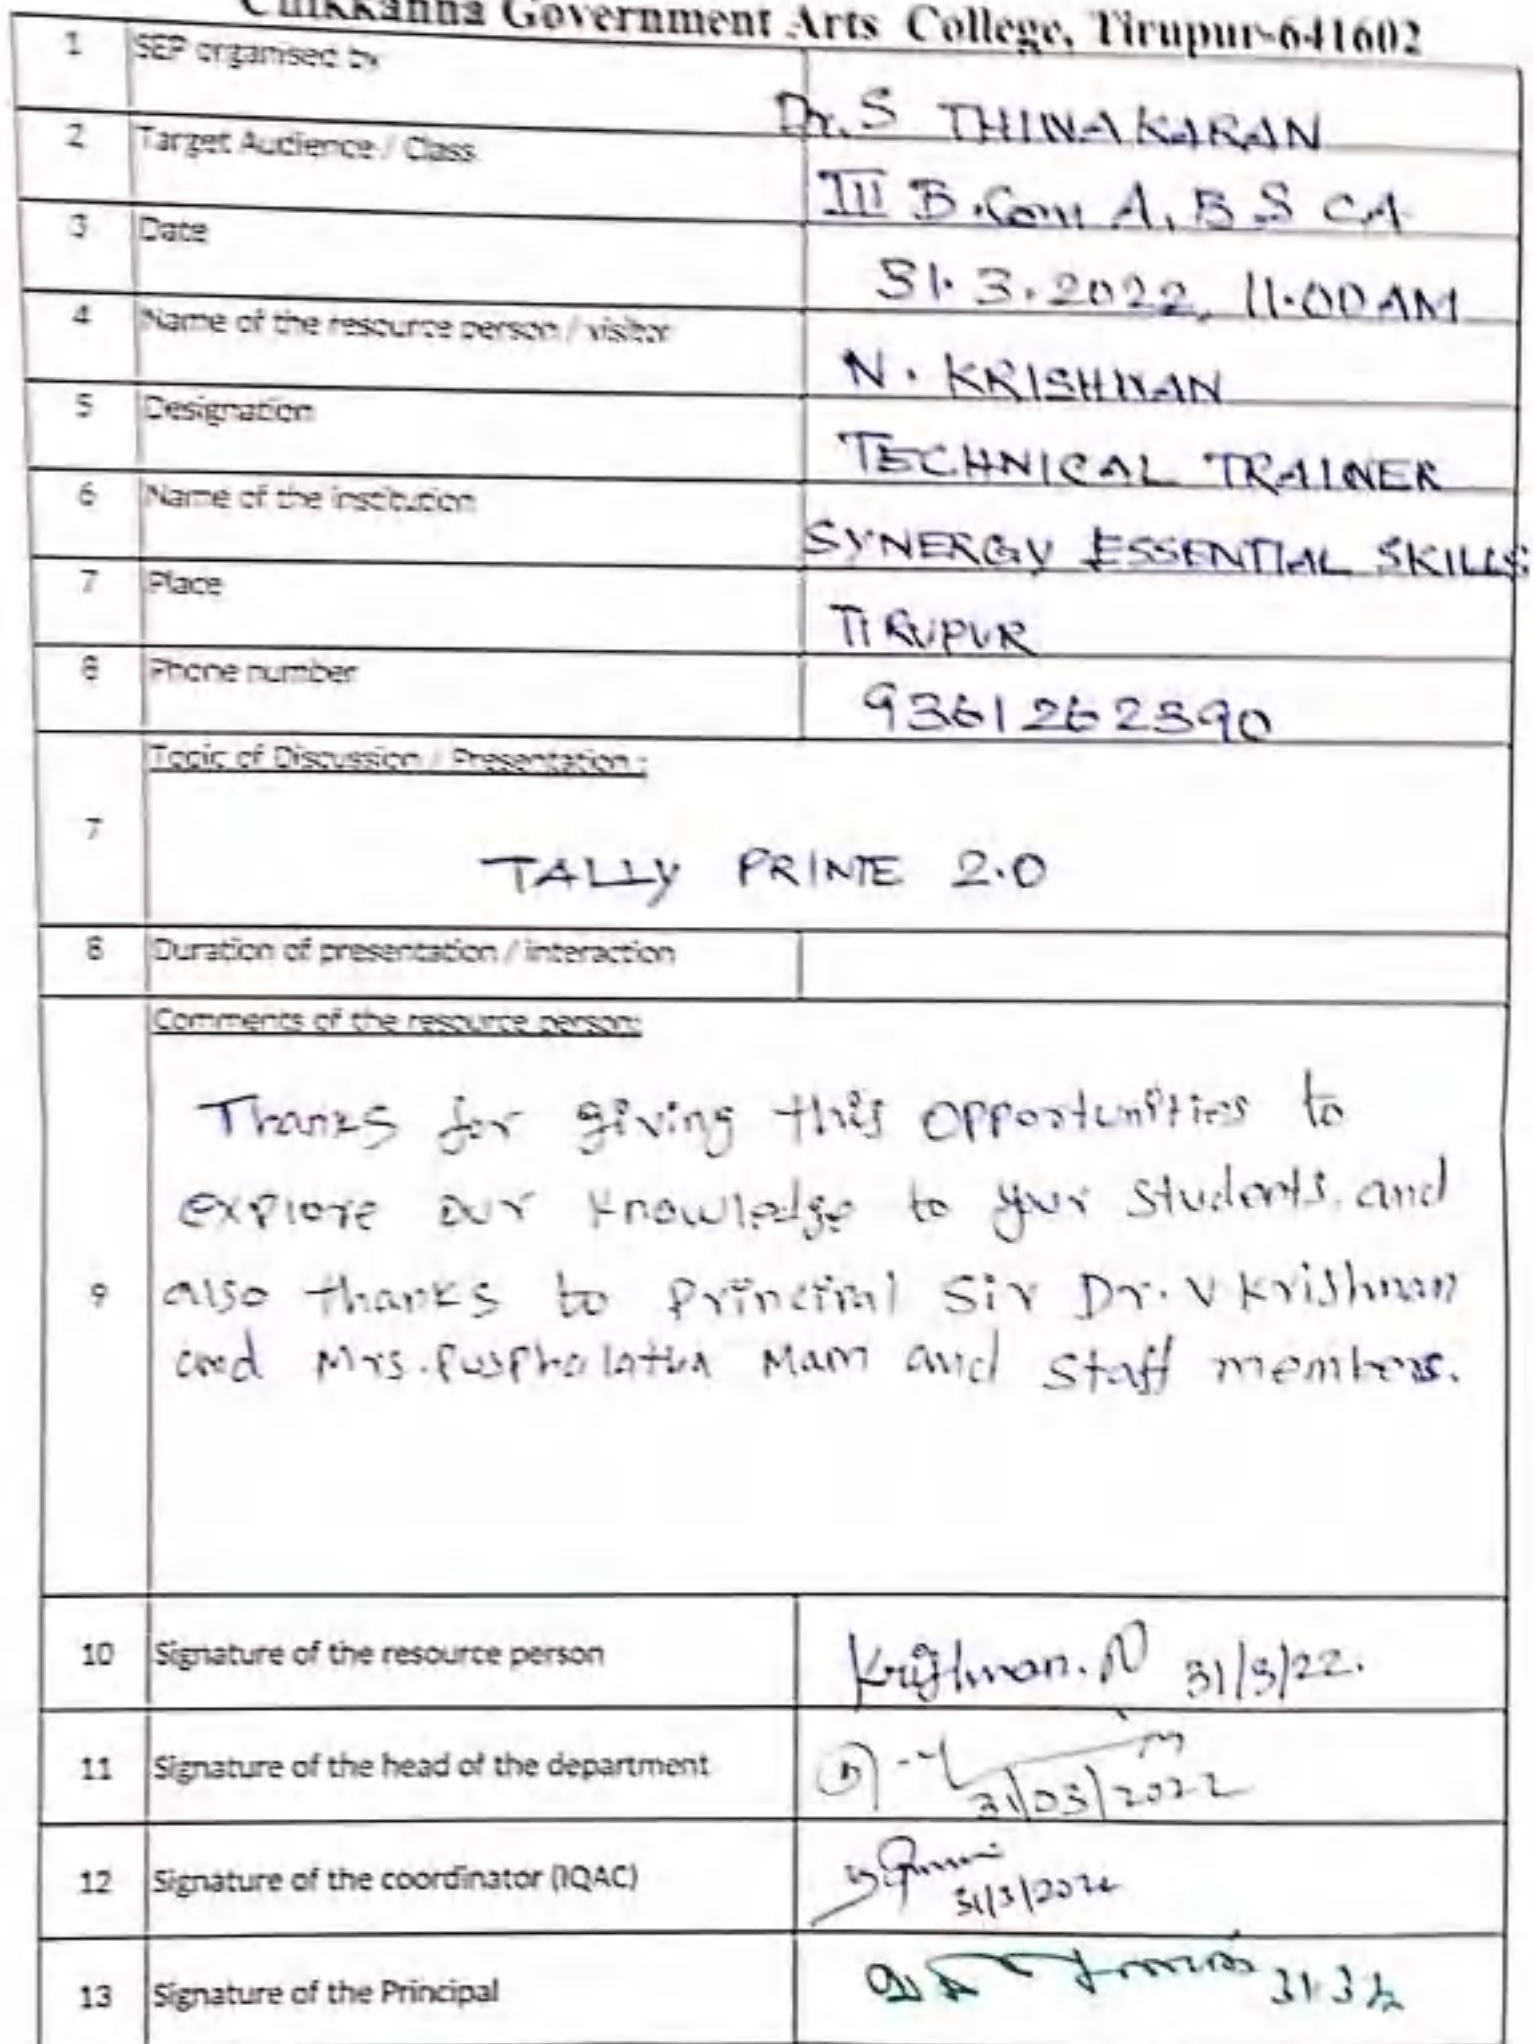 Chikkanna Government Arts College, Tirupur-641602
1 SEP organised by Dr. S THINAKARAN
2 Target Audience / Class III B.Com A, B S CA
3 Date 31.3.2022, 11.00AM
4 Name of the resource person / visitor N. KRISHNAN
5 Designation TECHNICAL TRAINER
6 Name of the institution SYNERGY ESSENTIAL SKILLS
7 Place TIRUPUR
8 Phone number 9361262390
Topic of Discussion / Presentation :
7
TALLY PRIME 2.0
8 Duration of presentation / interaction
Comments of the resource person:
Thanks for giving this opportunities to
explore our knowledge to your students. and
9 also thanks to Principal Sir Dr. V Krishnan
and Mrs. Pusphalatha Mam and Staff members.
10 Signature of the resource person Krishnan. N 31/3/22.
11 Signature of the head of the department
31/03/2022
12 Signature of the coordinator (IQAC)
31/3/2022
13 Signature of the Principal 31.3.22